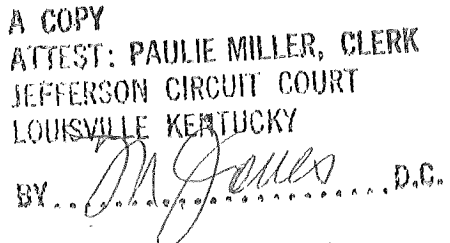 A COPY
ATTEST: PAULIE MILLER, CLERK
JEFFERSON CIRCUIT COURT
LOUISVILLE KENTUCKY
BY M Jones D.C.